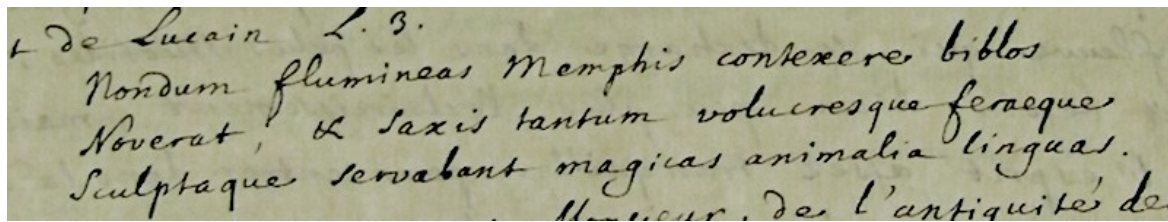 t de Lucain L. 3.
Nondum flumineas Memphis contexere biblos
Noverat, & saxis tantum volucresque feraeque
Sculptaque servabant magicas animalia linguas.
Monsieur, de l'antiquité de